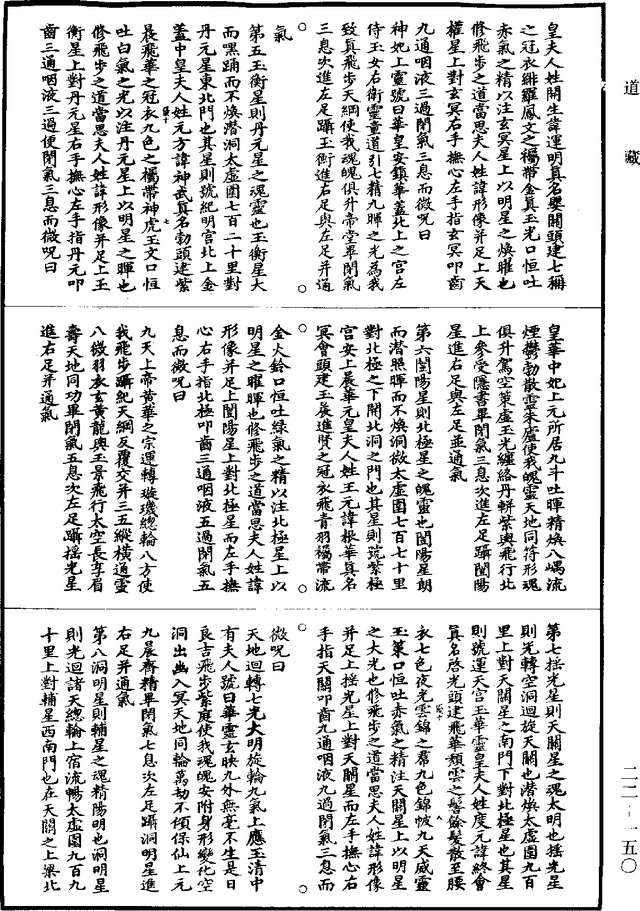 道藏
皇夫人姓開生諱運明真名嬰開頭建七稱
之冠衣緋羅鳳文之襡帶金真玉光口恒吐
赤氣之精以注玄冥星上以明星之煥曜也
修飛步之道當思夫人姓諱形像并足上天
權星上對玄冥右手撫心左手指玄冥叩齒
九通咽液三過閉氣三息而微呪曰
神妃上靈號曰華皇安鎮華蓋北上之宮左
侍玉女右衛靈童道引七精九暉之光為我
致真飛步天綱使我魂魄俱升帝堂畢閉氣
三息次進左足躡玉衡進右足與左足并通
氣
第五玉衡星則丹元星之魂靈也玉衡星大
而黑踊而不煥潛洞太虛圍七百二十里對
丹元星東北門也其星則號紀明宮北上金
蓋中皇夫人姓元方諱神武真名勃頭建紫
晨飛華之冠衣九色之襡帶神虎玉文口恒
吐白氣之光以注丹元星上以明星之暉也
修飛步之道當思夫人姓諱形像并足上玉
衡星上對丹元星右手撫心左手指丹元叩
齒三通咽液三過便閉氣三息而微呪曰
皇華中妃上元所居九斗吐暉精煥八嵎流
煙鬱勃散靈朱廬使我魄靈天地同符形魂
俱升駕空策虛玉光纏絡丹軿紫輿飛行北
上參受隱書畢閉氣三息次進左足躡闓陽
星進右足與左足並通氣
第六闓陽星則北極星之魄靈也闓陽星朗
而潛照暉而不煥洞微太虛圍七百七十里
對北極之下開北洞之門也其星則號紫極
宮安上晨華元皇夫人姓王元諱根華真名
冥會頭建玉晨進賢之冠衣飛青羽襡帶流
金火鈴口恒吐綠氣之精以注北極星上以
明星之曜暉也修飛步之道當思夫人姓諱
形像并足上闓陽星上對北極星而左手撫
心右手指北極叩齒三通咽液五過閉氣五
息而微呪曰
九天上帝黃華之宗運轉璇璣總輪八方使
我飛步躡紀天綱反覆交并三五縱橫通靈
八微羽衣玄黃龍輿玉景飛行太空長享眉
壽天地同功畢閉氣五息次左足躡搖光星
進右足并通氣
第七搖光星則天關星之魂太明也搖光星
則光轉空洞迴旋天關也潛煥太虛圍九百
里上對天關星之南門下對北極星也其星
則號運天宮玉華靈皇夫人姓度元諱終會
真名啓光頭建飛華頹雲之髻餘髮散至腰
衣七色夜光雲錦之羃九色錦帔九天威靈
玉策口恒吐赤氣之精注天關星上以明星
之大光也修飛步之道當思夫人姓諱形像
并足上搖光星上對天關星而左手撫心右
手指天關叩齒九通咽液九過閉氣三息而
微呪曰
天地迴轉七光大明旋輪九氣上應玉清中
有夫人號曰華靈玄映九外無毫不生是日
良吉飛步紫庭使我魂魄安附身形變化空
洞出幽入冥天地同輪萬劫不傾保仙上元
九晨齊精畢閉氣七息次左足躡洞明星進
右足并通氣
第八洞明星則輔星之魂精陽明也洞明星
則光迴諸天總輪上宿流暢太虛圍九百九
十里上對輔星西南門也在天關之上梁北
二二-一五〇